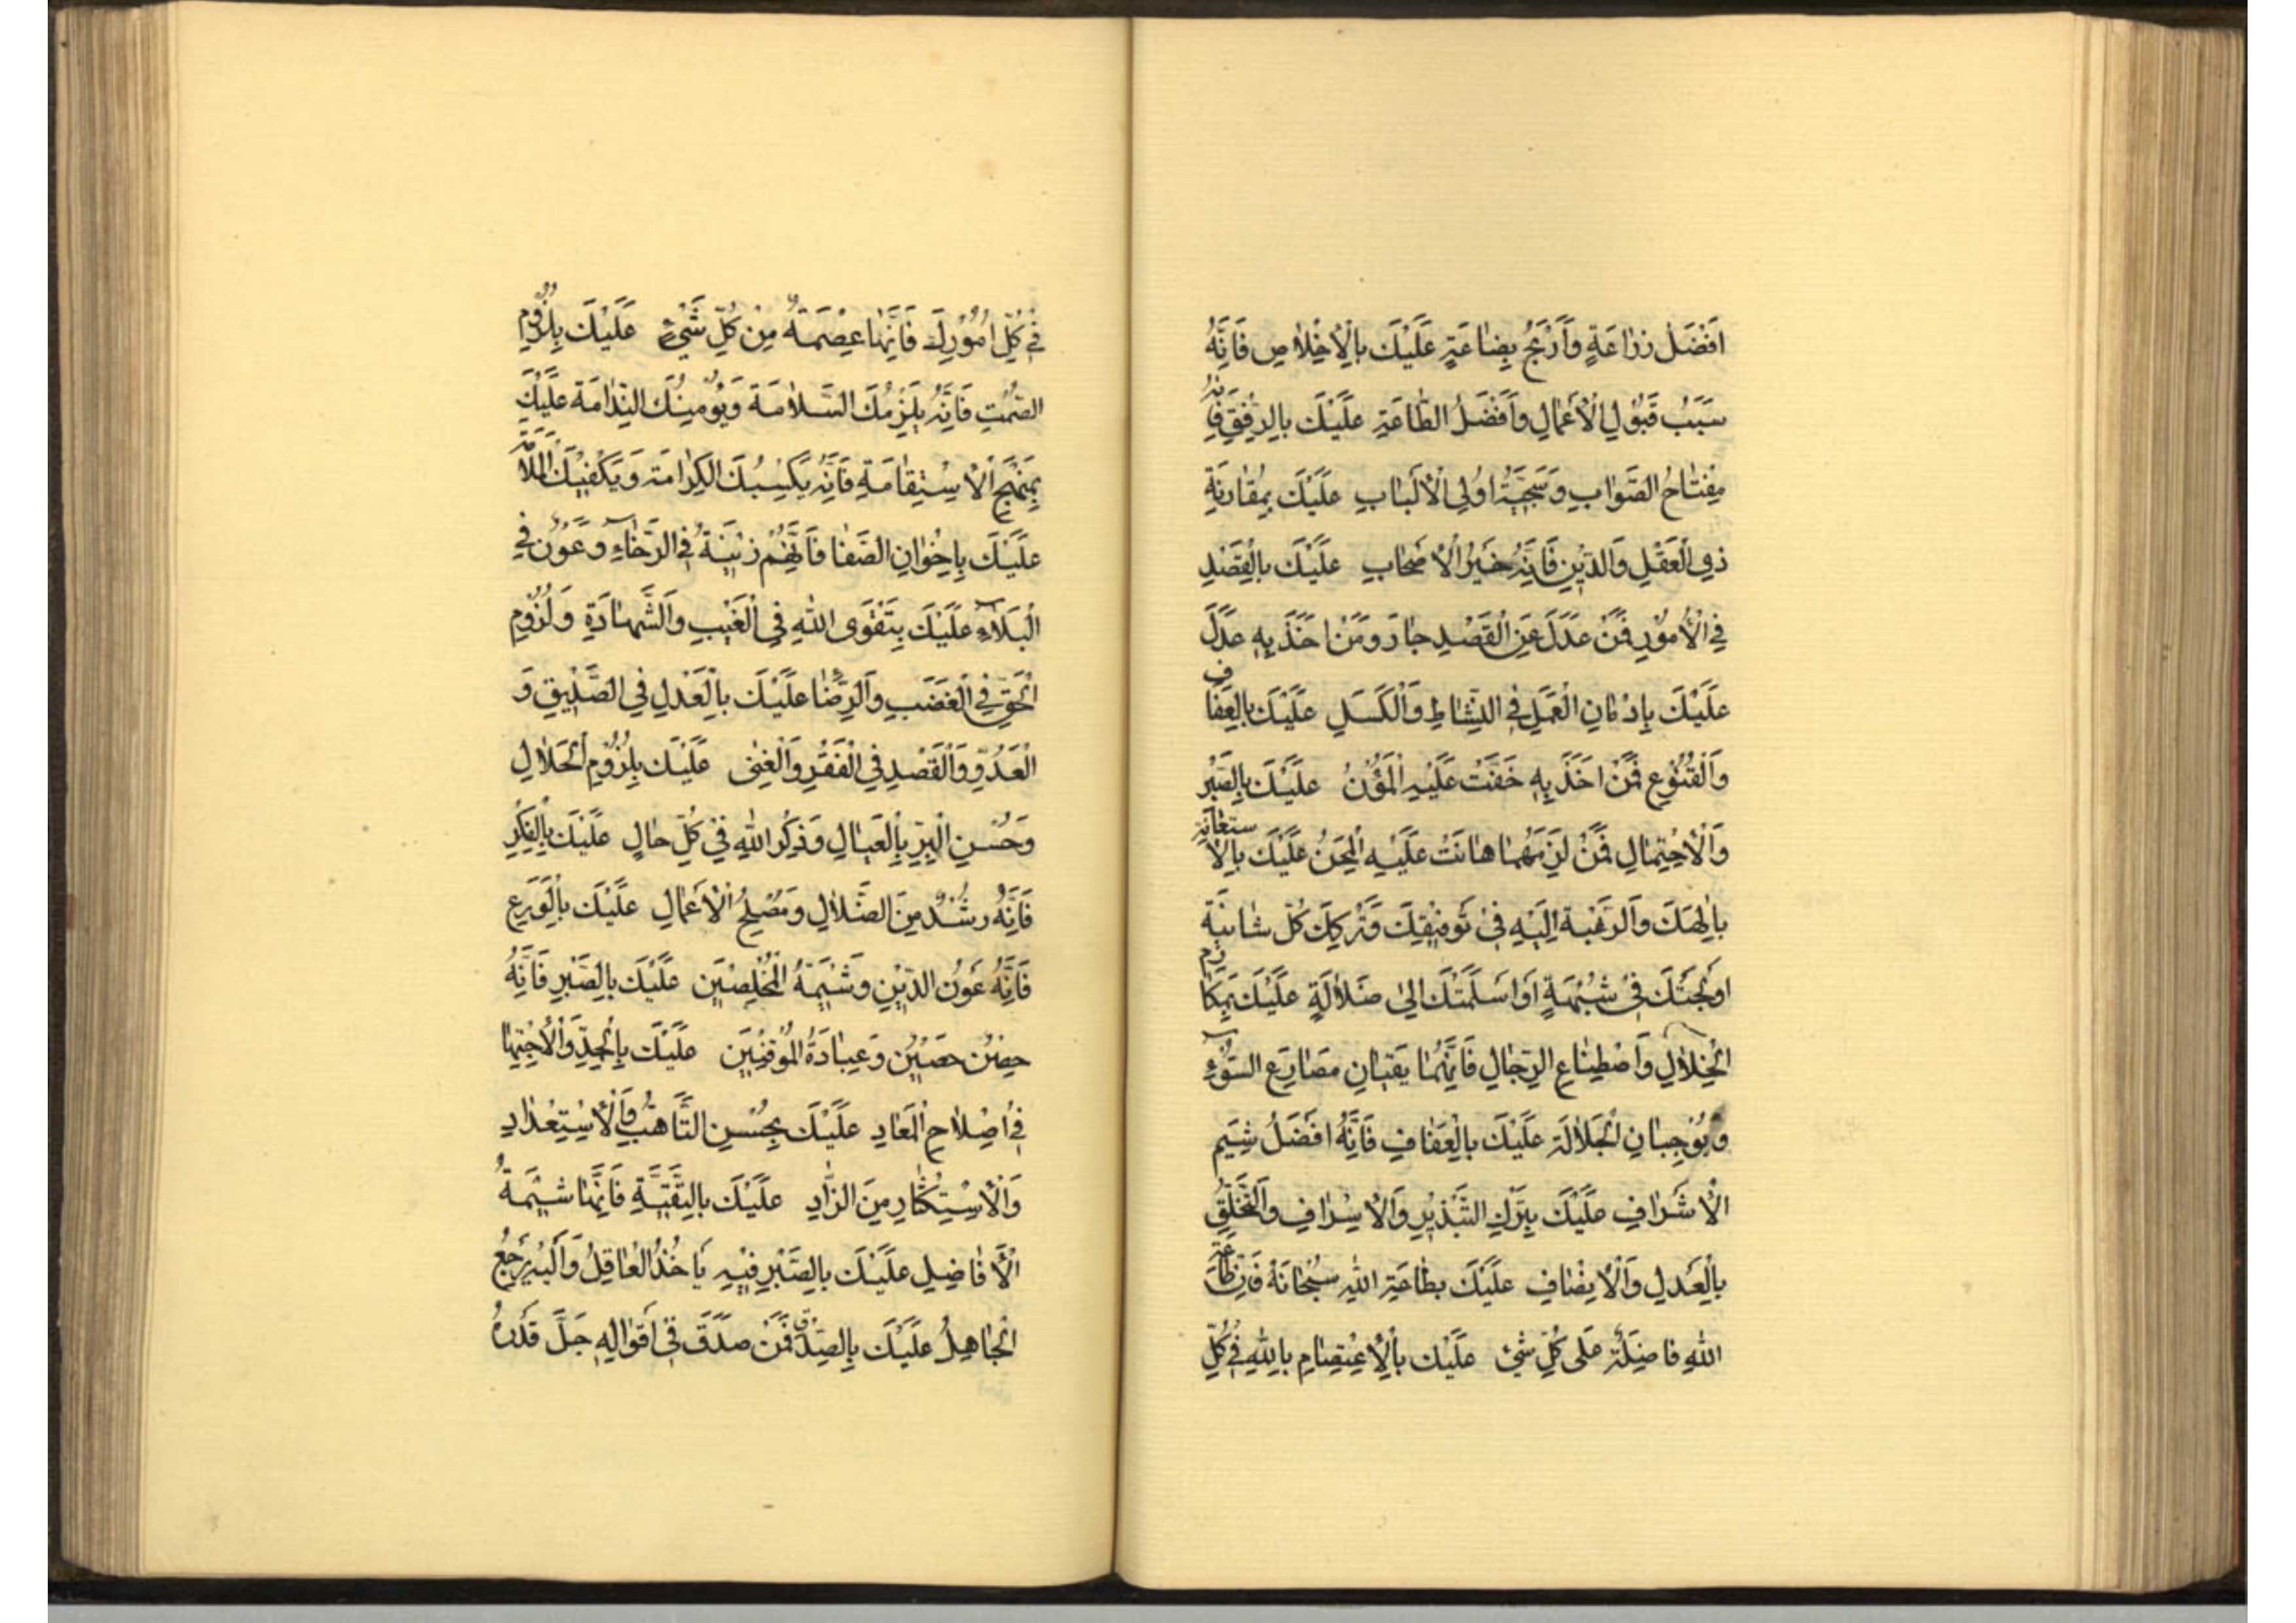 اَفْضَلُ زِرٰاعَةٍ وَاَرْبَحُ بِضٰاعَةٍ عَلَيْكَ بِالْاِخْلٰاصِ فَاِنَّهُ
سَبَبُ قَبُولِ الْاَعْمٰالِ وَاَفْضَلُ الطّٰاعَةِ عَلَيْكَ بِالرِّفْقِ فَاِنَّهُ
مِفْتٰاحُ الصَّوٰابِ وَسَجِيَّةُ اُولِي الْاَلْبٰابِ عَلَيْكَ بِمُقٰارَنَةِ
ذِي الْعَقْلِ وَالدّ۪ينِ فَاِنَّهُ خَيْرُ الْاَصْحٰابِ عَلَيْكَ بِالْقَصْدِ
فِي الْاُمُورِ فَمَنْ عَدَلَ عَنِ الْقَصْدِ جٰارَ وَمَنْ اَخَذَ بِهِ عَدَلَ
عَلَيْكَ بِاِدْمٰانِ الْعَمَلِ فِي النِّشٰاطِ وَالْكَسَلِ عَلَيْكَ بِالْعَفٰافِ
وَالْقُنُوعِ فَمَنْ اَخَذَ بِهِ خَفَّتْ عَلَيْهِ الْمُؤَنُ عَلَيْكَ بِالصَّبْرِ
وَالْاِحْتِمٰالِ فَمَنْ لَزِمَهُمٰا هٰانَتْ عَلَيْهِ الْمِحَنُ عَلَيْكَ بِالْاِسْتِعٰانَةِ
بِاِلٰهِكَ وَالرَّغْبَةِ اِلَيْهِ ف۪ي تَوْف۪يقِكَ وَتَرْكِكَ كُلَّ شٰائِبَةٍ
اَوْلَجَتْكَ ف۪ي شُبْهَةٍ اَوْ اَسْلَمَتْكَ اِلىٰ ضَلٰالَةٍ عَلَيْكَ بِمَكٰارِمِ
الْخِلٰالِ وَاصْطِنٰاعِ الرِّجٰالِ فَاِنَّهُمٰا يَقِيٰانِ مَصٰارِعَ السُّوۤءِ
وَيُوجِبٰانِ الْجَلٰالَةَ عَلَيْكَ بِالْعَفٰافِ فَاِنَّهُ اَفْضَلُ شِيَمِ
الْاَشْرٰافِ عَلَيْكَ بِتَرْكِ التَّبْذ۪يرِ وَالْاِسْرٰافِ وَالتَّخَلُّقِ
بِالْعَدْلِ وَالْاِنْصٰافِ عَلَيْكَ بِطٰاعَةِ اللهِ سُبْحٰانَهُ فَاِنَّ طٰاعَةَ
اللهِ فٰاضِلَةٌ عَلى كُلِّ شَيْءٍ عَلَيْكَ بِالْاِعْتِصٰامِ بِاللهِ ف۪ي كُلِّ
ف۪ي كُلِّ اُمُورِكَ فَاِنَّهٰا عِصْمَةٌ مِنْ كُلِّ شَيْءٍ عَلَيْكَ بِلُزُومِ
الصَّمْتِ فَاِنَّهُ يَلْزِمُكَ السَّلٰامَةَ وَيُؤْمِنُكَ النَّدٰامَةَ عَلَيْكَ
بِمَنْهَجِ الْاِسْتِقٰامَةِ فَاِنَّهُ يَكْسِبُكَ الْكَرٰامَةَ وَيَكْف۪يكَ الْمَلٰامَةَ
عَلَيْكَ بِاِخْوٰانِ الصَّفٰا فَاِنَّهُمْ ز۪ينَةٌ فِي الرَّخٰاۤءِ وَعَوْنٌ فِي
الْبَلٰاۤءِ عَلَيْكَ بِتَقْوَى اللهِ فِي الْغَيْبِ وَالشَّهٰادَةِ وَلُزُومِ
الْحَقِّ فِي الْغَضَبِ وَالرِّضٰا عَلَيْكَ بِالْعَدْلِ فِي الصَّد۪يقِ وَ
الْعَدُوِّ وَالْقَصْدِ فِي الْفَقْرِ وَالْغِنىٰ عَلَيْكَ بِلُزُومِ الْحَلٰالِ
وَحُسْنِ الْبِرِّ بِالْعِيٰالِ وَذِكْرِ اللهِ ف۪ي كُلِّ حٰالٍ عَلَيْكَ بِالْفِكْرِ
فَاِنَّهُ رُشْدٌ مِنَ الضَّلٰالِ وَمُصْلِحُ الْاَعْمٰالِ عَلَيْكَ بِالْوَرَعِ
فَاِنَّهُ عَوْنُ الدّ۪ينِ وَش۪يمَةُ الْمُخْلِص۪ينَ عَلَيْكَ بِالصَّبْرِ فَاِنَّهُ
حِصْنٌ حَص۪ينٌ وَعِبٰادَةُ الْمُوقِن۪ينَ عَلَيْكَ بِالْجِدِّ وَالْاِجْتِهٰا
ف۪ي اِصْلٰاحِ الْمَعٰادِ عَلَيْكَ بِحُسْنِ التَّاَهُّبِ وَالْاِسْتِعْدٰادِ
وَالْاِسْتِكْثٰارِ مِنَ الزّٰادِ عَلَيْكَ بِالتَّقِيَّةِ فَاِنَّهٰا ش۪يمَةُ
الْاَفٰاضِلِ عَلَيْكَ بِالصَّبْرِ ف۪يهِ يَاْخُذُ الْعٰاقِلُ وَاِلَيْهِ يَرْجِعُ
الْجٰاهِلُ عَلَيْكَ بِالصِّدْقِ فَمَنْ صَدَقَ ف۪ي اَقْوٰالِهِ جَلَّ قَدْرُهُ